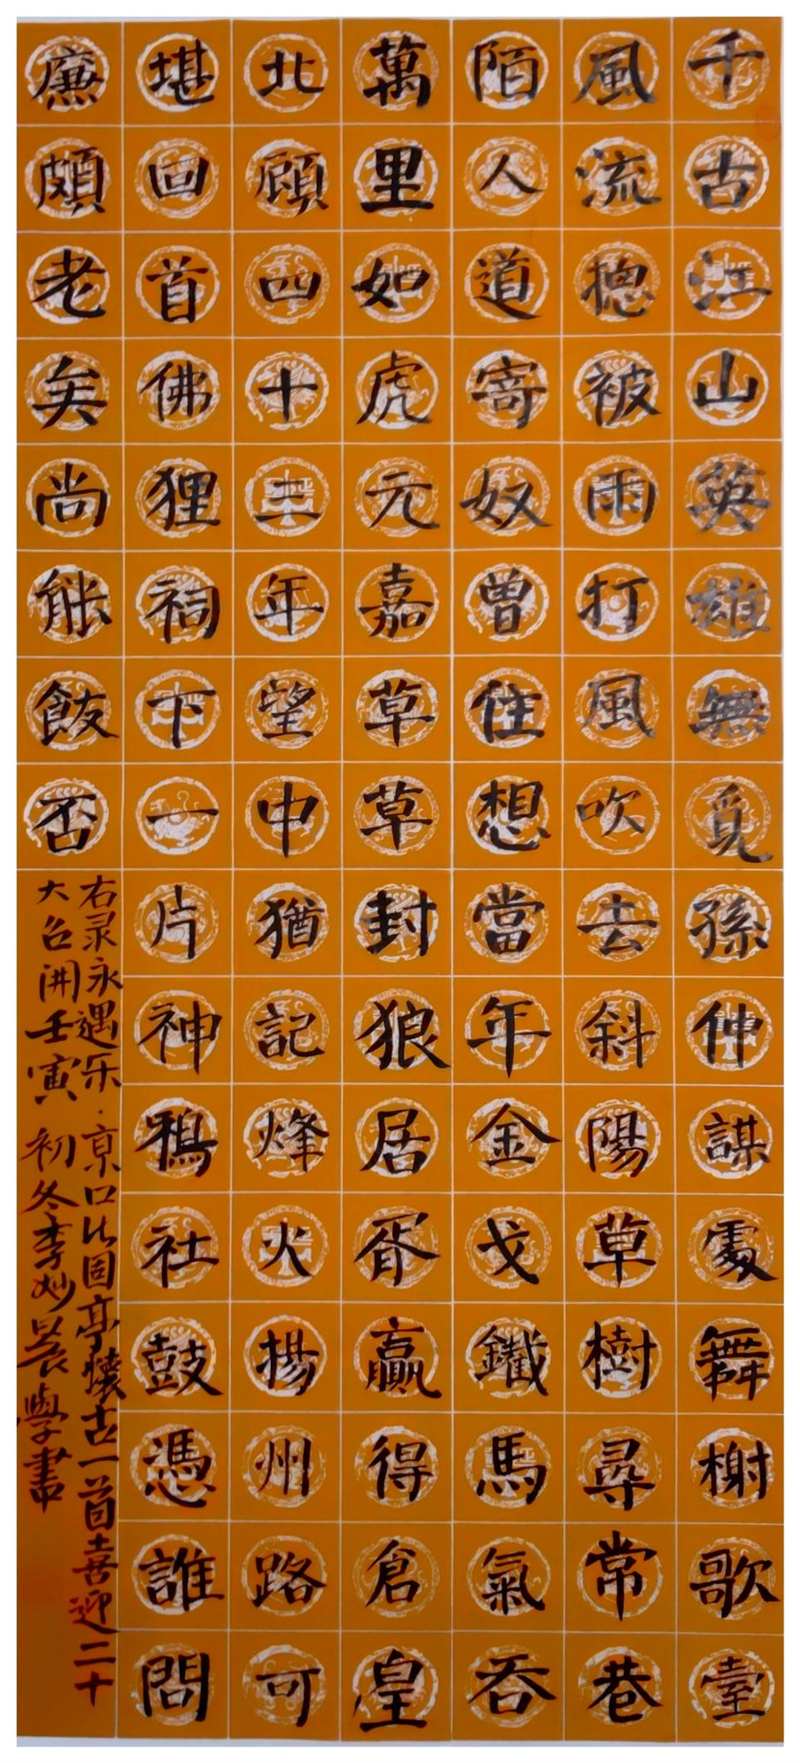 千古江山英雄無覓孫仲謀處舞榭歌臺
風流摠被雨打風吹去斜陽草樹尋常巷
陌人道寄奴曾住想當年金戈鐵馬氣吞
萬里如虎元嘉草草封狼居胥贏得倉皇
北顧四十三年望中猶記烽火揚州路可
堪回首佛狸祠下一片神鴉社鼓憑誰問
廉頗老矣尚能飯否
右录永遇乐·京口北固亭懷古一首喜迎二十
大召開壬寅初冬李妙晨學書